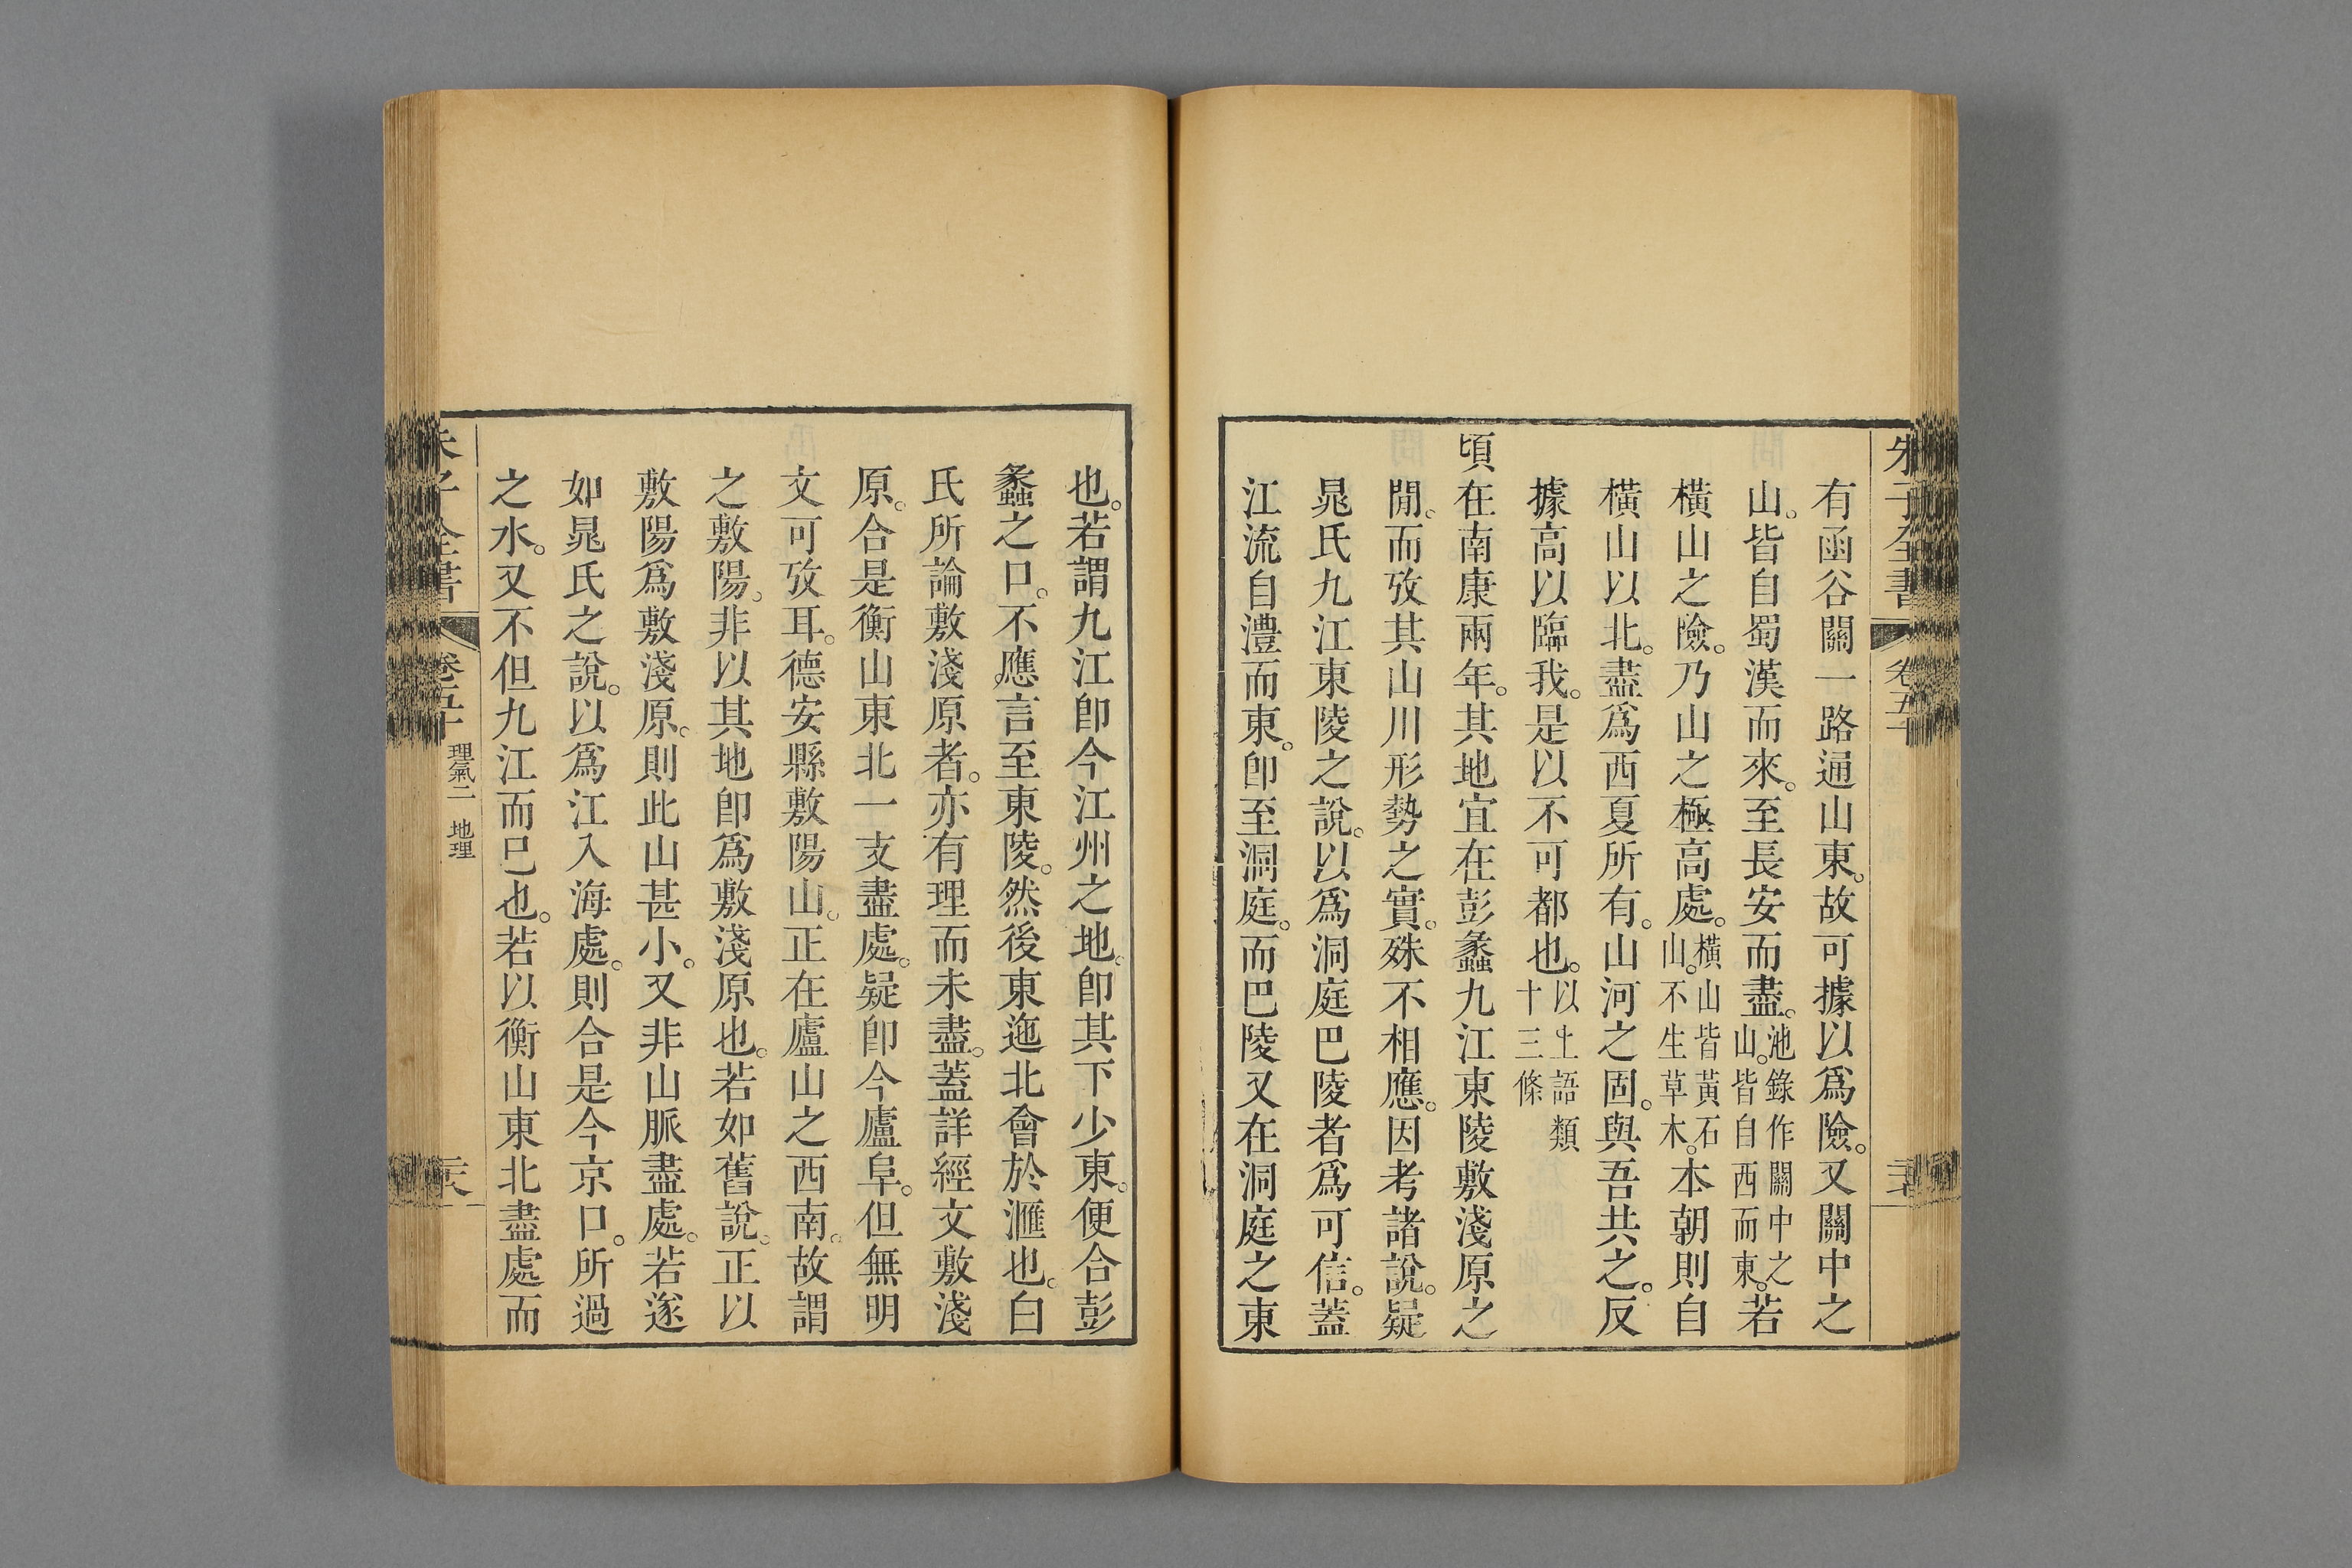 朱子全書 卷五十
有函谷關一路通山東。故可據以爲險。又關中之
山。皆自蜀漢而來。至長安而盡。池錄作關中之山。皆自西而東。若
橫山之險。乃山之極高處。橫山皆黃石山。不生草木。本朝則自
橫山以北。盡爲西夏所有。山河之固。與吾共之。反
據高以臨我。是以不可都也。以上語類十三條
頃在南康兩年。其地宜在彭蠡九江東陵敷淺原之
閒。而攷其山川形勢之實。殊不相應。因考諸說。疑
晁氏九江東陵之說。以爲洞庭巴陵者爲可信。蓋
江流自澧而東。卽至洞庭。而巴陵又在洞庭之東
也。若謂九江卽今江州之地。卽其下少東。便合彭
蠡之口。不應言至東陵。然後東迤北會於滙也。白
氏所論敷淺原者。亦有理而未盡。蓋詳經文敷淺
原。合是衡山東北一支盡處。疑卽今廬阜。但無明
文可攷耳。德安縣敷陽山。正在廬山之西南。故謂
之敷陽。非以其地卽爲敷淺原也。若如舊說。正以
敷陽爲敷淺原。則此山甚小。又非山脈盡處。若遂
如晁氏之說。以爲江入海處。則合是今京口。所過
之水。又不但九江而已也。若以衡山東北盡處而
朱子全書 卷五十 理氣二 地理